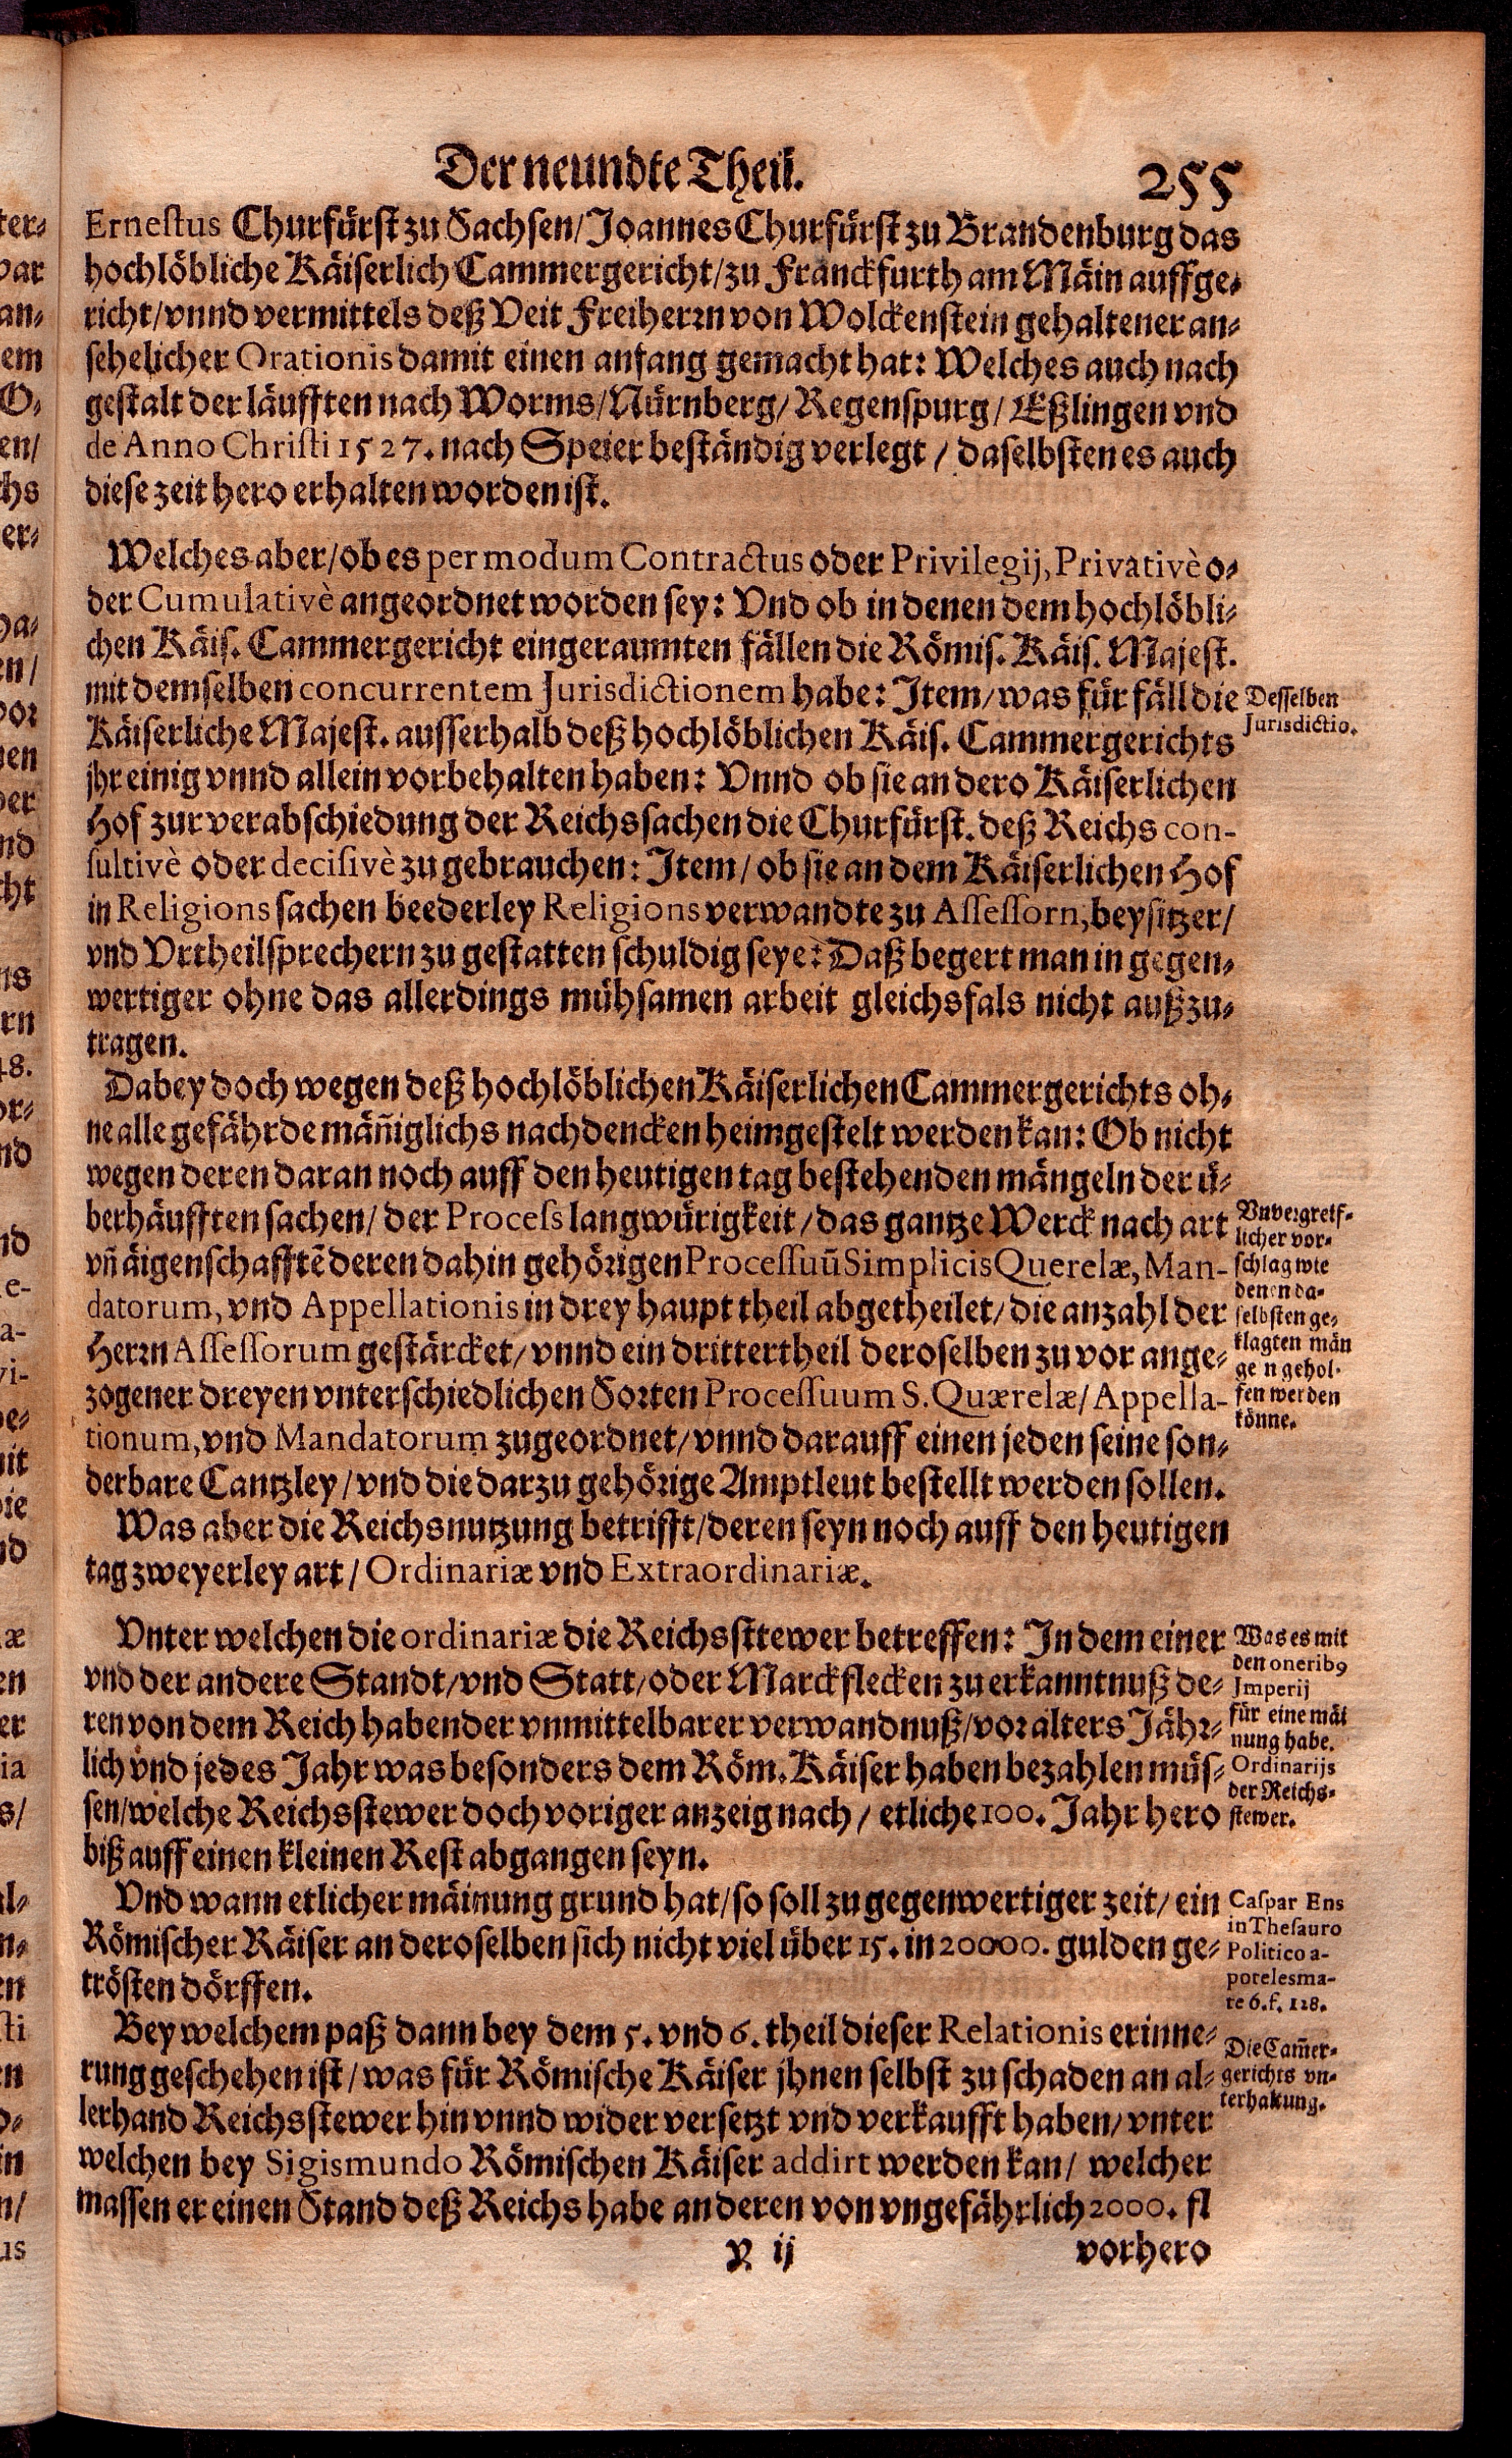 Der neundte Theil.
255
Ernestus Churfürst zu Sachsen/ Joannes Churfürst zu Brandenburg das
hochlöbliche Käiserlich Cammergericht/ zu Franckfurth am Mäin auffge-
richt/ vnnd vermittels deß Veit Freiherrn von Wolckenstein gehaltener an-
sehelicher Orationis damit einen anfang gemacht hat: Welches auch nach
gestalt der läufften nach Worms/ Nürnberg/ Regenspurg/ Eßlingen vnd
de Anno Christi 1527. nach Speier beständig verlegt/ daselbsten es auch
diese zeit hero erhalten worden ist.
Welches aber/ ob es per modum Contractus oder Privilegij, Privativè o-
der Cumulativè angeordnet worden sey: Vnd ob in denen dem hochlöbli-
chen Käis. Cammergericht eingeraumten fällen die Römis. Käis. Majest.
mit demselben concurrentem Jurisdictionem habe: Item/ was für fäll die
Käiserliche Majest. ausserhalb deß hochlöblichen Käis. Cammergerichts
jhr einig vnnd allein vorbehalten haben: Vnnd ob sie an dero Käiserlichen
Hof zur verabschiedung der Reichssachen die Churfürst. deß Reichs con-
sultivè oder decisivè zu gebrauchen: Item/ ob sie an dem Käiserlichen Hof
in Religions sachen beederley Religions verwandte zu Assessorn, beysitzer/
vnd Vrtheilsprechern zu gestatten schuldig seye: Daß begert man in gegen-
wertiger ohne das allerdings mühsamen arbeit gleichsfals nicht außzu-
tragen.
Desselben
Jurisdictio.
Dabey doch wegen deß hochlöblichen Käiserlichen Cammergerichts oh-
ne alle gefährde mäñiglichs nachdencken heimgestelt werden kan: Ob nicht
wegen deren daran noch auff den heutigen tag bestehenden mängeln der ü-
berhäufften sachen/ der Process langwürigkeit/ das gantze Werck nach art
vñ äigenschafftē deren dahin gehörigen Processuū Simplicis Querelæ, Man-
datorum, vnd Appellationis in drey haupt theil abgetheilet/ die anzahl der
Herrn Assessorum gestärcket/ vnnd ein drittertheil deroselben zu vor ange-
zogener dreyen vnterschiedlichen Sorten Processuum S. Quærelæ/ Appella-
tionum, vnd Mandatorum zugeordnet/ vnnd darauff einen jeden seine son-
derbare Cantzley/ vnd die darzu gehörige Amptleut bestellt werden sollen.
Vnvergreif-
licher vor-
schlag wie
denen da-
selbsten ge-
klagten män
gen gehol-
fen werden
könne.
Was aber die Reichsnutzung betrifft/ deren seyn noch auff den heutigen
tag zweyerley art/ Ordinariæ vnd Extraordinariæ.
Vnter welchen die ordinariæ die Reichssttewer betreffen: In dem einer
vnd der andere Standt/ vnd Statt/ oder Marckflecken zu erkanntnuß de-
ren von dem Reich habender vnmittelbarer verwandnuß/ vor alters Jähr-
lich vnd jedes Jahr was besonders dem Röm. Käiser haben bezahlen müs-
sen/ welche Reichsstewer doch voriger anzeig nach/ etliche 100. Jahr hero
biß auff einen kleinen Rest abgangen seyn.
Was es mit
den oneribꝰ
Imperij
für eine mäi
nung habe.
Ordinarijs
der Reichs-
stewer.
Vnd wann etlicher mäinung grund hat/ so soll zu gegenwertiger zeit/ ein
Römischer Käiser an deroselben sich nicht viel über 15. in 20000. gulden ge-
trösten dörffen.
Caspar Ens
in Thesauro
Politico a-
potelesma-
te 6. f. 128.
Bey welchem paß dann bey dem 5. vnd 6. theil dieser Relationis erinne-
rung geschehen ist/ was für Römische Käiser jhnen selbst zu schaden an al-
lerhand Reichsstewer hin vnnd wider versetzt vnd verkaufft haben/ vnter
welchen bey Sigismundo Römischen Käiser addirt werden kan/ welcher
massen er einen Stand deß Reichs habe an deren von vngefährlich 2000. fl
Die Cam̃er-
gerichts vn-
terhaltung.
Y ij
vorhero